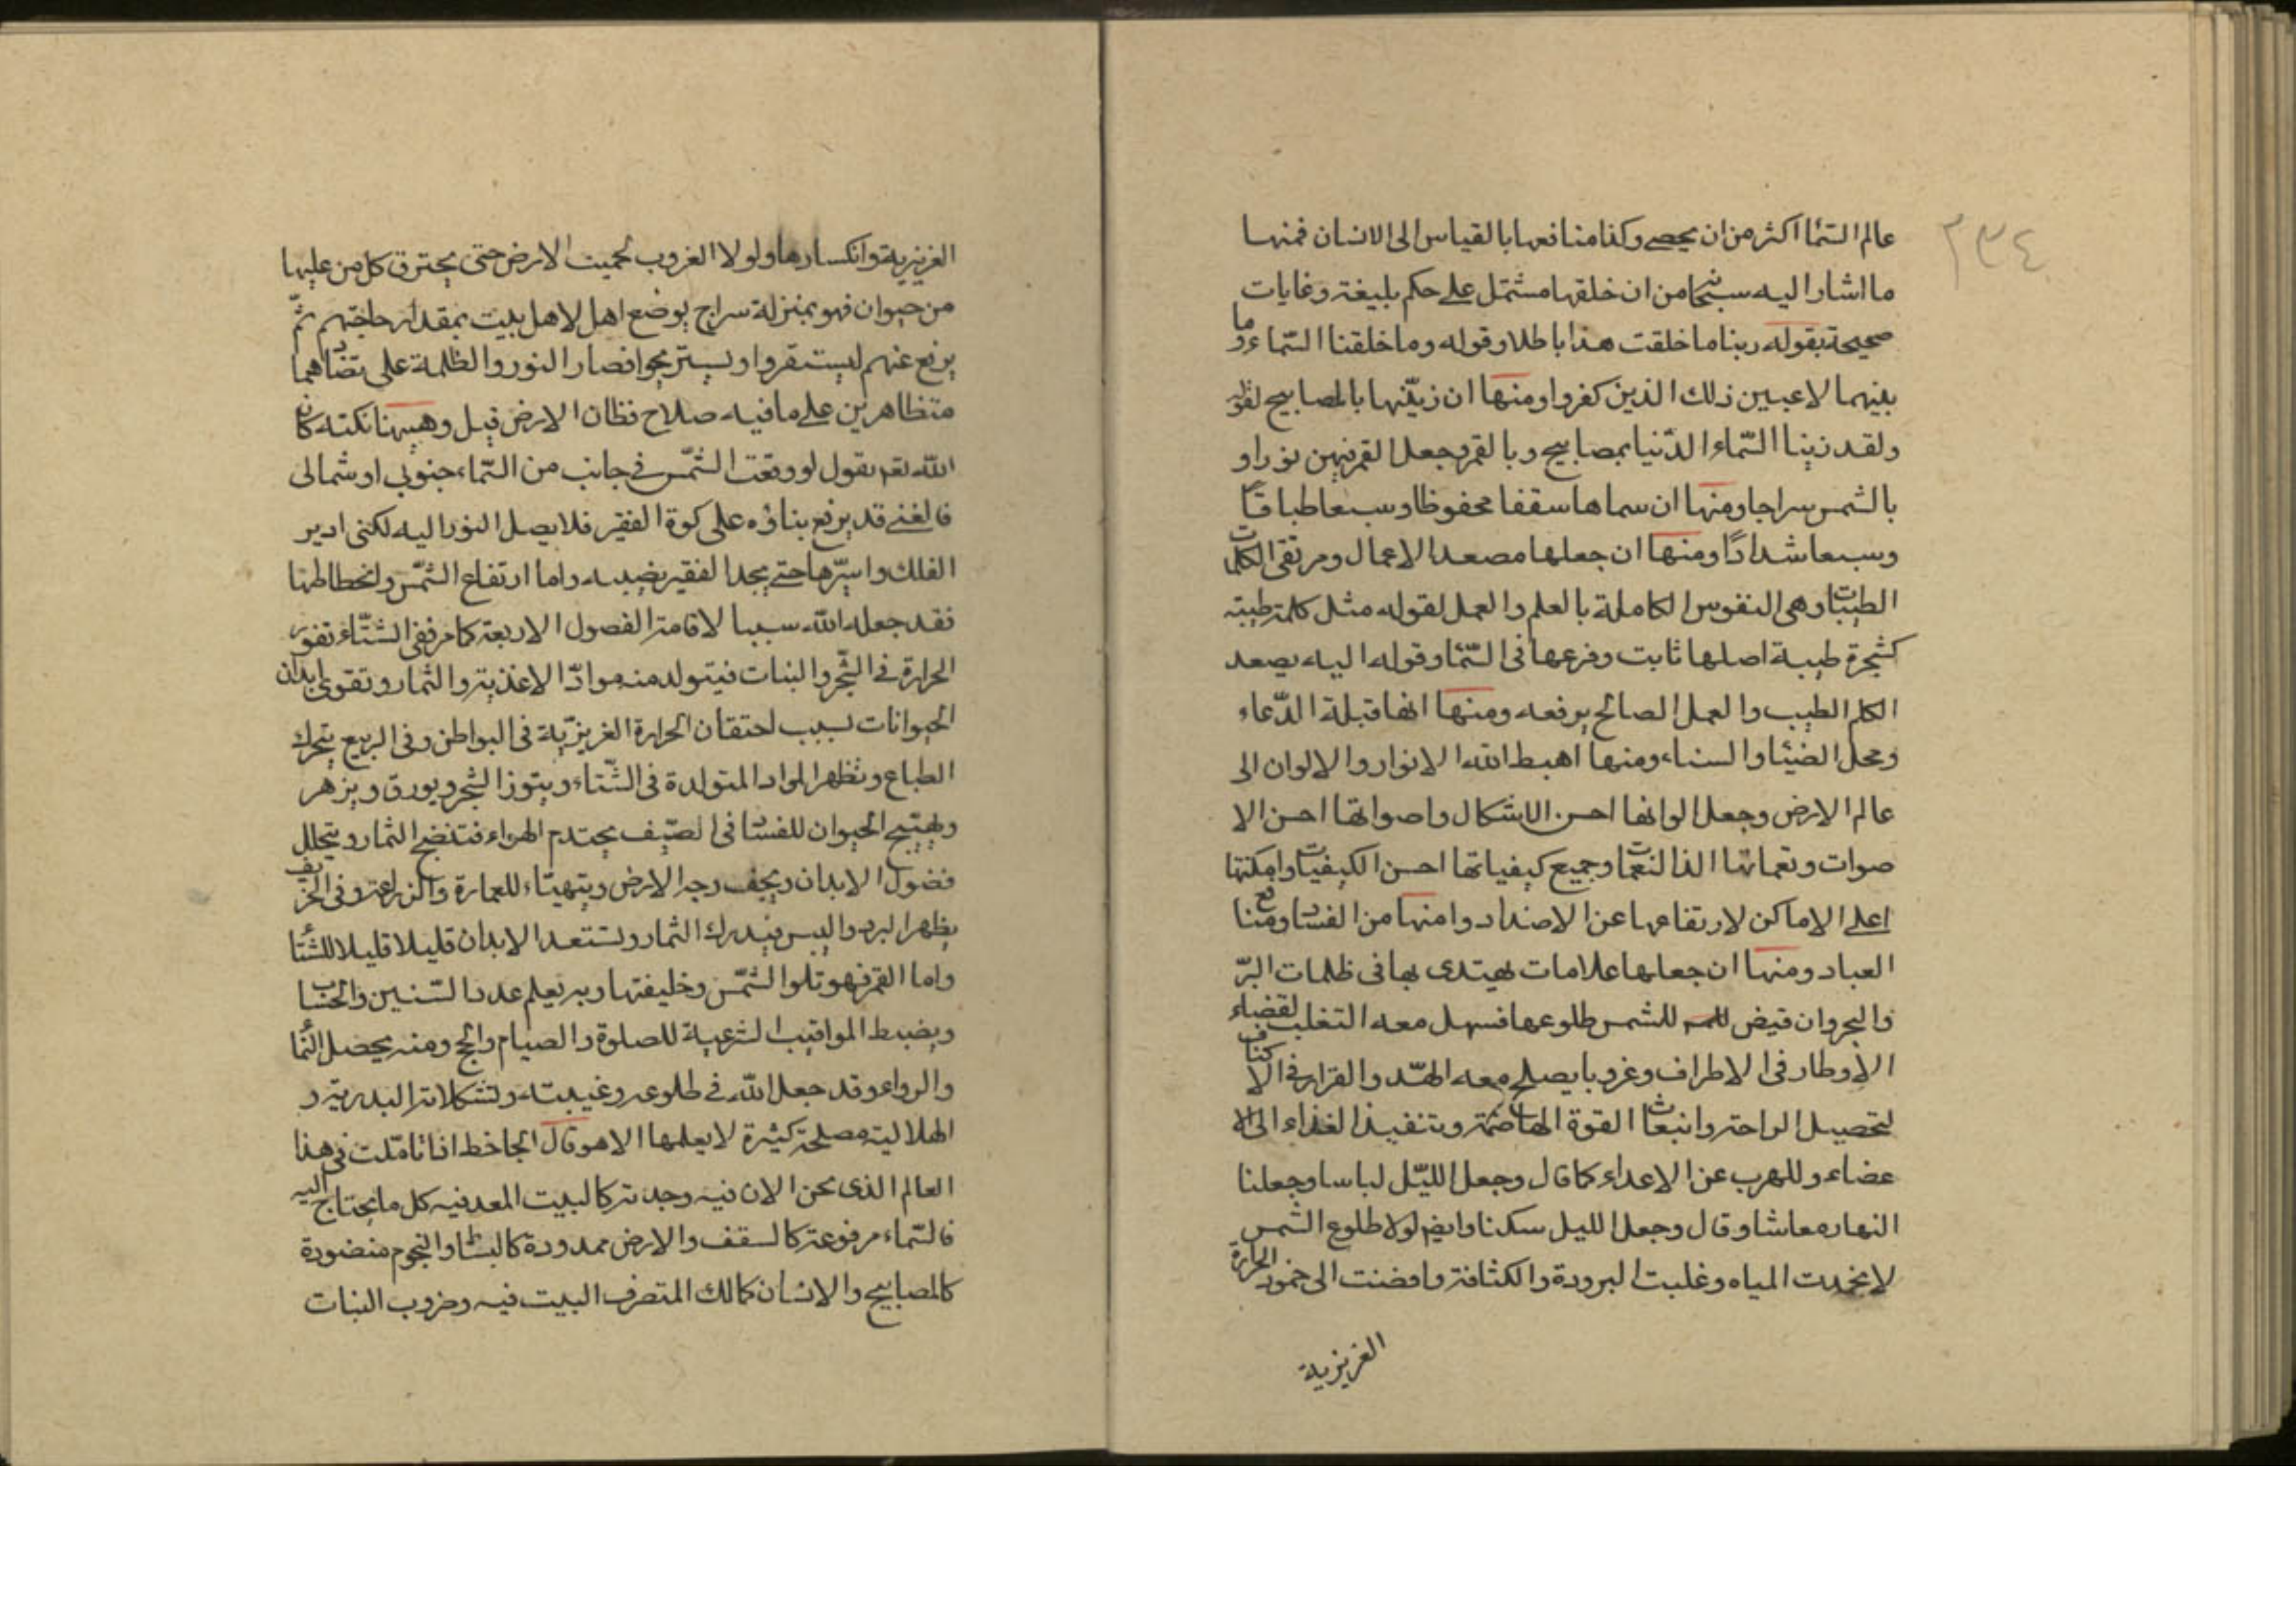 ٢٣٤
عالم السماء اكثر من ان يحصى وكذا منافعها بالقياس الى الانسان فمنها
ما اشار اليه سبحا من ان خلقها مشتمل على حكم بليغة وغايات
صحيحة بقوله ربنا ما خلقت هذا باطلا وقوله وما خلقنا السماء وما
بينهما لاعبين ذلك الذين كفروا ومنها ان زينها بالمصابيح لقوله
ولقد زينا السماء الدنيا بمصابيح وبالقمر وجعل القمر فيهن نورا و
بالشمس سراجا ومنها ان سماها سقفا محفوظا وسبعا طباقا
وسبعا شدادا ومنها ان جعلها مصعد الاعمال ومرتقى الكلمات
الطيبات وهى النفوس الكاملة بالعلم والعمل لقوله مثل كلمة طيبة
كشجرة طيبة اصلها ثابت وفرعها فى السماء وقوله اليه يصعد
الكلم الطيب والعمل الصالح يرفعه ومنها انها قبلة الدعاء
ومحل الضياء والسناء ومنها اهبط الله الانوار والالوان الى
عالم الارض وجعل الوانها احسن الاشكال واصواتها احسن الا
صوات ونعماتها الذ النعمات وجميع كيفياتها احسن الكيفيات وامكنتها
اعلى الاماكن لارتفاعها عن الاضداد وامنها من الفساد ومنافع
العباد ومنها ان جعلها علامات يهتدى بها فى ظلمات البر
والبحر وان قيض للشمس طلوعها فسهل معه التغلب لقضاء
الاوطار فى الاطراف وغروبا يصلح معه الهدو والقرار فى الاكناف
لتحصيل الراحة وانبعاث القوة الهاضمة وتنفيذ الغذاء الى الا
عضاء وللهرب عن الاعداء كما قال وجعل الليل لباسا وجعلنا
النهار معاشا وقال وجعل الليل سكنا وايضا لولا طلوع الشمس
لانجمدت المياه وغلبت البرودة والكثافة وافضت الى خمود الحرارة
الغريزية
الغريزية وانكسارها ولولا الغروب لحميت الارض حتى يحترق كل من عليها
من حيوان فهو بمنزلة سراج يوضع اهل لاهل بيت بمقدار حاجتهم ثم
يرفع عنهم ليستقروا ويستريحوا فصار النور والظلمة على تضادهما
متظاهرين على ما فيه صلاح قظان الارض قيل وههنا نكتة كان
الله تعم يقول لو وقعت الشمس فى جانب من السماء جنوبى او شمالى
فالغنى قد يرفع بناؤه على كوة الفقير فلا يصل النور اليه لكنى ادير
الفلك واسيرها حتى يجد الفقير نصيبه واما ارتفاع الشمس وانحطاطها
فقد جعله الله سببا لاقامة الفصول الاربعة كما مر ففى الشتاء تغور
الحرارة فى الشجر والنبات فيتولد منه مواد الاغذية والثمار وتقوى ابدان
الحيوانات بسبب احتقان الحرارة الغريزية فى البواطن وفى الربيع يتحرك
الطباع وتظهر المواد المتولدة فى الشتاء ويتوز الشجر ويورق ويزهر
ويهيج الحيوان للفساد فى الصيف يحتدم الهواء فتنضج الثمار ويتحلل
فضول الابدان ويجف وجه الارض ويتهيئاء للعمارة والزراعة وفى الخريف
يظهر البرد واليبس فيدرك الثمار ويستعد الابدان قليلا قليلا للشتاء
واما القمر فهو تلو الشمس وخليفتها وبه يعلم عدد السنين والحساب
ويضبط المواقيت الشرعية للصلوة والصيام والحج ومنه يحصل النماء
والرواء وقد جعل الله فى طلوعه وغيبته وتشكلاته البدرية و
الهلالية مصلحة كثيرة لا يعلمها الا هو قال الجاخط اذا تاملت فى هذا
العالم الذى نحن الان فيه وجدته كالبيت المعد فيه كل ما يحتاج اليه
فالسماء مرفوعة كالسقف والارض ممدودة كالبساط والنجوم منضودة
كالمصابيح والانسان كمالك المتصرف البيت فيه وضروب النبات